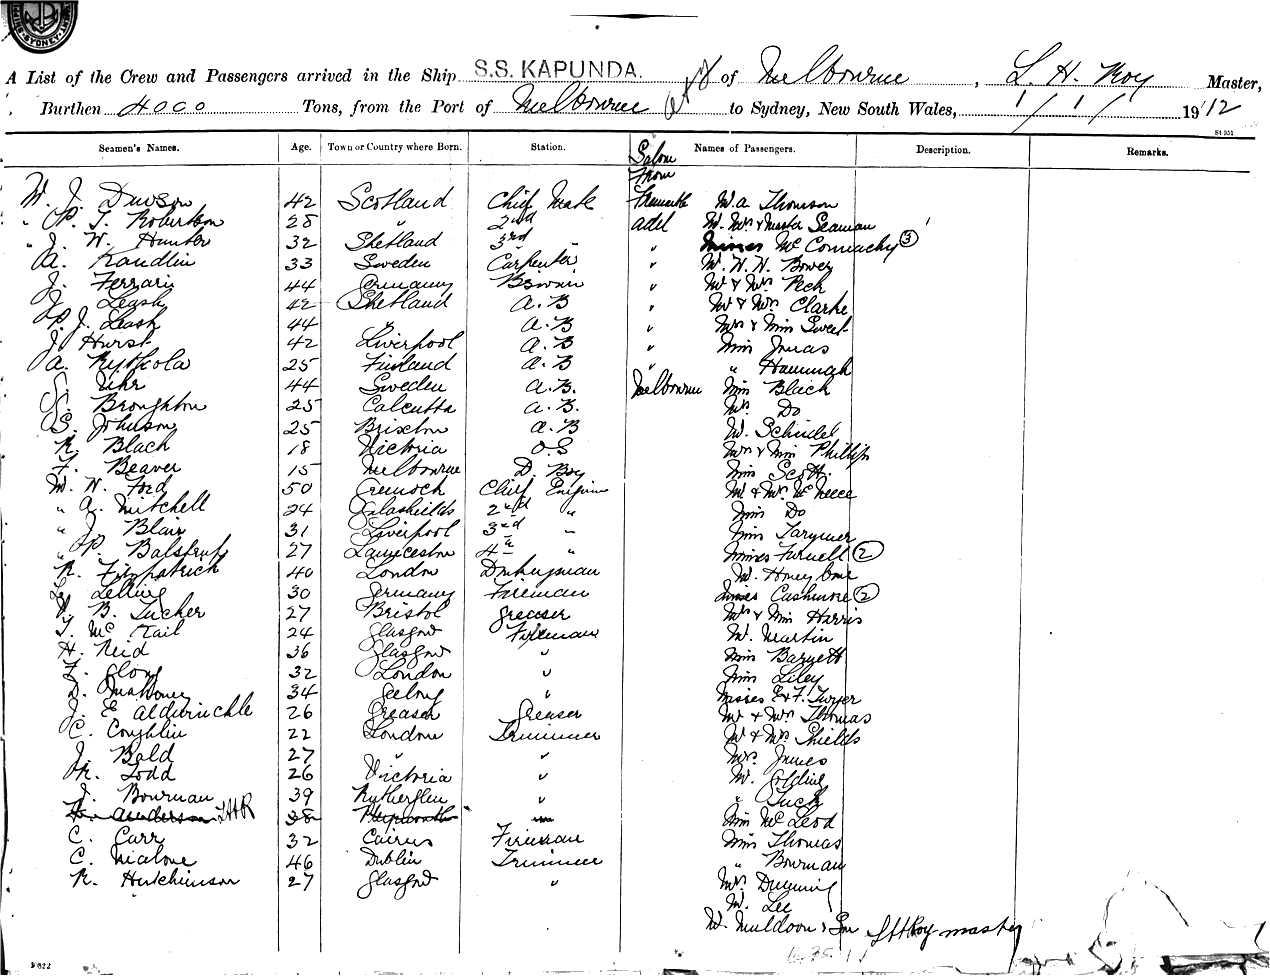 SYDNEY
A List of the Crew and Passengers arrived in the Ship S.S. KAPUNDA. of Melbourne, L. H. Roy Master,
Burthen 4000 Tons, from the Port of Melbourne to Sydney, New South Wales, 1/1/ 1912
St 351
Seamen's Names. Age. Town or Country where Born. Station. Names of Passengers. Description. Remarks.
Saloon
From
W. J. Dawson 42 Scotland Chief Mate Fremantle W. A. Thomson
" P. T. Robertson 28 " 2nd " adel M. Mrs & Master Seaman
" J. W. Hunter 32 Shetland 3rd " " Misses Mc Connachy 3
A. Kandlin 33 Sweden Carpenter " M. W. W. Bower
J. Ferrari 44 Germany " Mr & Mrs Peck
J. Leash 42 Shetland A.B " Mr & Mrs Clarke
P. J. Leash 44 " A.B " Mrs & Miss Sweet
J. Hurst 42 Liverpool A.B " Miss
A. 25 Finland A.B " " Hannah
Uhr 44 Sweden A.B. Melbourne Miss Black
Broughton 25 Calcutta A.B. Mr. Do
S. Johnson 25 Brixton A.B M. Schidel
R. Black 18 Victoria OS Mrs & Miss Phillips
F. Beaver 15 Melbourne D. Boy Miss Scott
W. W. Ford 50 Greenock Chief Engineer Mr & Mrs McNeece
" A. Mitchell 24 Galashields 2nd " Miss Do
" J. Blair 31 Liverpool 3rd " Miss
" P. 27 Launceston 4th " Misses Furnell 2
R. Fitzpatrick 40 London Donkeyman M. Honeybone
30 Germany Fireman Misses Cashmore 2
B. Tucher 27 Bristol Greaser Mrs & Miss Harris
T. Mc Kail 24 Glasgow Fireman M. Martin
H. Reid 36 Glasgow " Miss Barnett
32 London " Miss Liley
D. Mahoney 34 Geelong " Misses E & F. Turner
J. E Aldwinckle 26 Greaser Greaser Mr & Mrs Thomas
C. Coughlin 22 London Trimmer Mr & Mrs Shields
J. Bald 27 " " Mrs. James
R. Todd 26 Victoria " M. Golding
J. Bowman 39 Rutherglen " " Tuck
Anderson LHR 38 Miss McLeod
C. Carr 32 Cairns Fireman Miss Thomas
C. Malone 46 Dublin Trimmer " Bowman
R. Hutchinson 27 Glasgow " Mrs.
M. Lee
M. Muldoon & Son LHRoy master